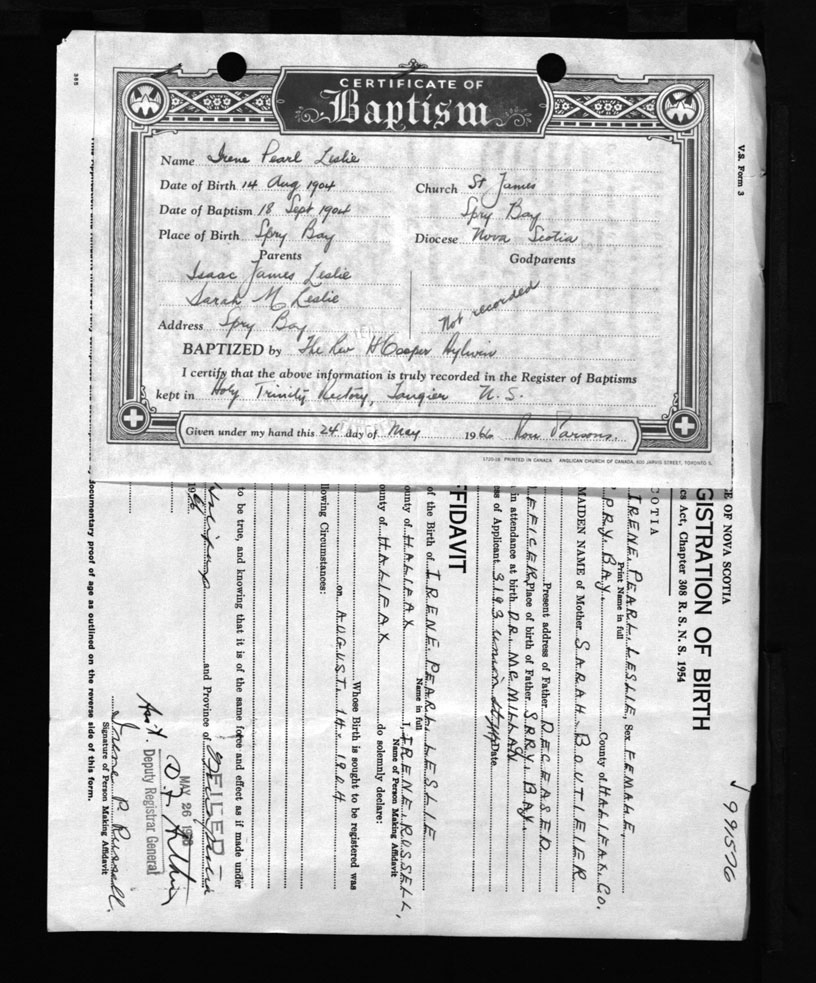 385
V.S. Form 3
CERTIFICATE OF
Baptism
Name Irene Pearl Leslie
Date of Birth 14 Aug 1904
Church St James
Date of Baptism 18 Sept 1904
Spry Bay
Place of Birth Spry Bay
Diocese Nova Scotia
Parents
Godparents
Isaac James Leslie
Sarah M Leslie
Not recorded
Address Spry Bay
BAPTIZED by The Rev H Cooper Aylwin
I certify that the above information is truly recorded in the Register of Baptisms
kept in Holy Trinity Rectory, Tangier N.S.
Given under my hand this 24 day of May 1966 Ron Parsons
1720-16 PRINTED IN CANADA ANGLICAN CHURCH OF CANADA, 600 JARVIS STREET, TORONTO 5,
991576
E OF NOVA SCOTIA
GISTRATION OF BIRTH
cs Act, Chapter 308 R. S. N. S. 1954
COTIA
IRENE PEARL LESLIE, Sex FEMALE,
Print Name in full
PRY BAY. County of HALIFAX CO.
MAIDEN NAME of Mother SARAH BOUTILIER
Present address of Father DECEASED
Place of birth of Father SPRY BAY.
in attendance at birth DR. MCMILLAN
ess of Applicant 3193 Union St Hfx Date
FFIDAVIT
of the Birth of IRENE PEARL LESLIE
Name in full
ounty of HALIFAX I, IRENE RUSSELL,
Name of Person Making Affidavit
ounty of HALIFAX do solemnly declare:
Whose Birth is sought to be registered was
on AUGUST 14 1904
llowing Circumstances:
to be true, and knowing that it is of the same force and effect as if made under
Halifax and Province of
FILED
MAY 26 1966
Ass't. Deputy Registrar General
Irene P. Russell.
Signature of Person Making Affidavit
documentary proof of age as outlined on the reverse side of this form.